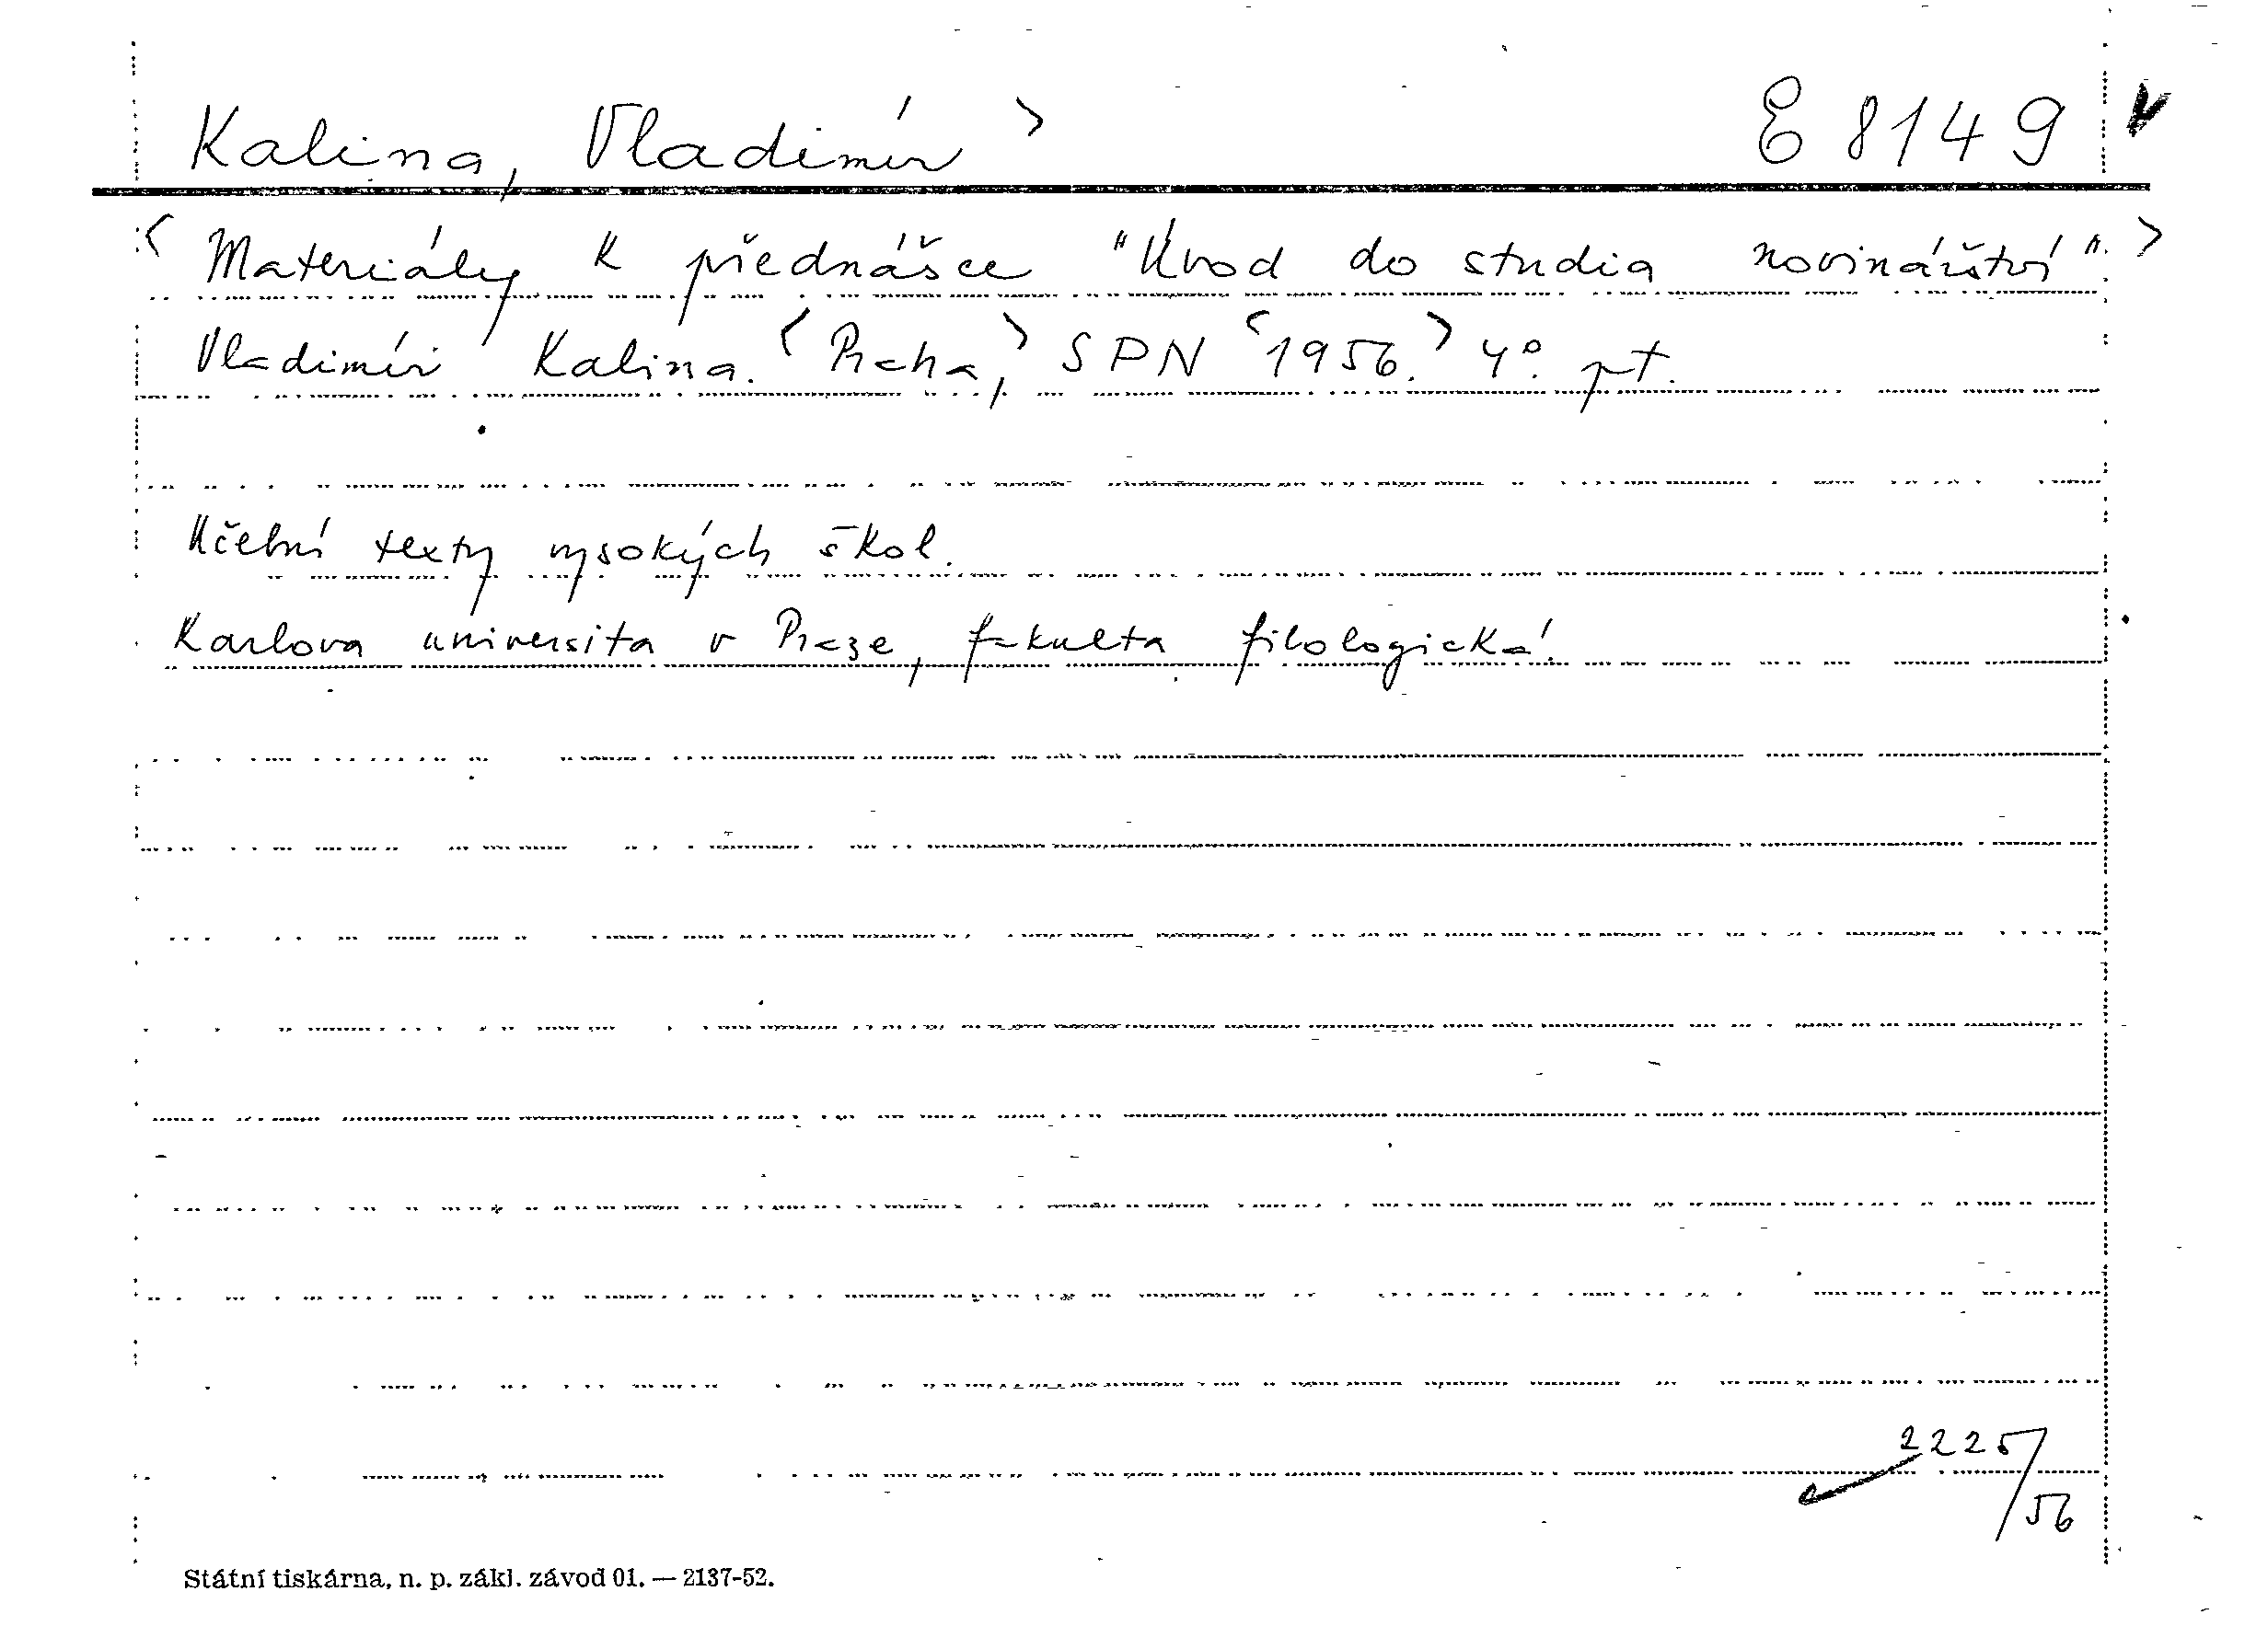 Kalina, Vladimír > E 8149 v
< Materiály k přednášce "Úvod do studia novinářství". >
Vladimír Kalina. <Praha,> SPN <1956.> 4°. pt.
Učební texty vysokých škol.
Karlova universita v Praze, fakulta filologická.
2225/56
Státní tiskárna, n. p. zákl. závod 01. — 2137-52.